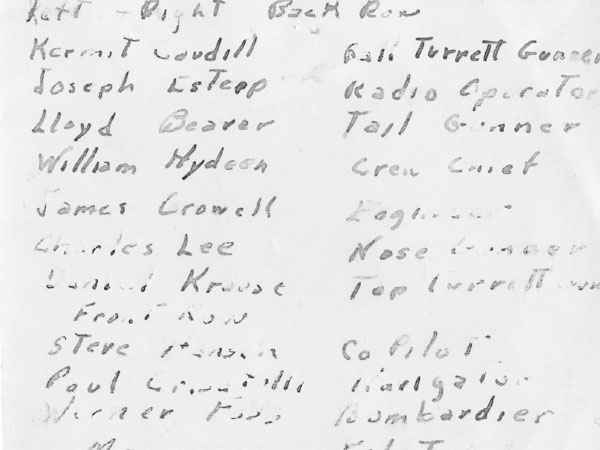 Left - Right Back Row
Kermit Caudill Ball Turrett Gunner
Joseph Estepp Radio Operator
Lloyd Beaver Tail Gunner
William Hydeen Crew Chief
James Crowell Engineer
Charles Lee Nose Gunner
Daniel Krause Top Turrett
Front Row
Steve Hansen Co Pilot
Paul Navigator
Werner Bombardier